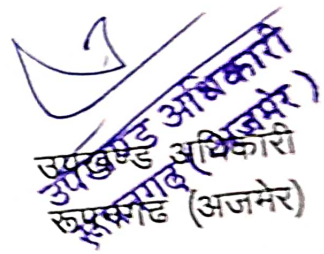 उपखण्ड अधिकारी
रूपनगढ (अजमेर)
उपखण्ड अधिकारी
(अजमेर)